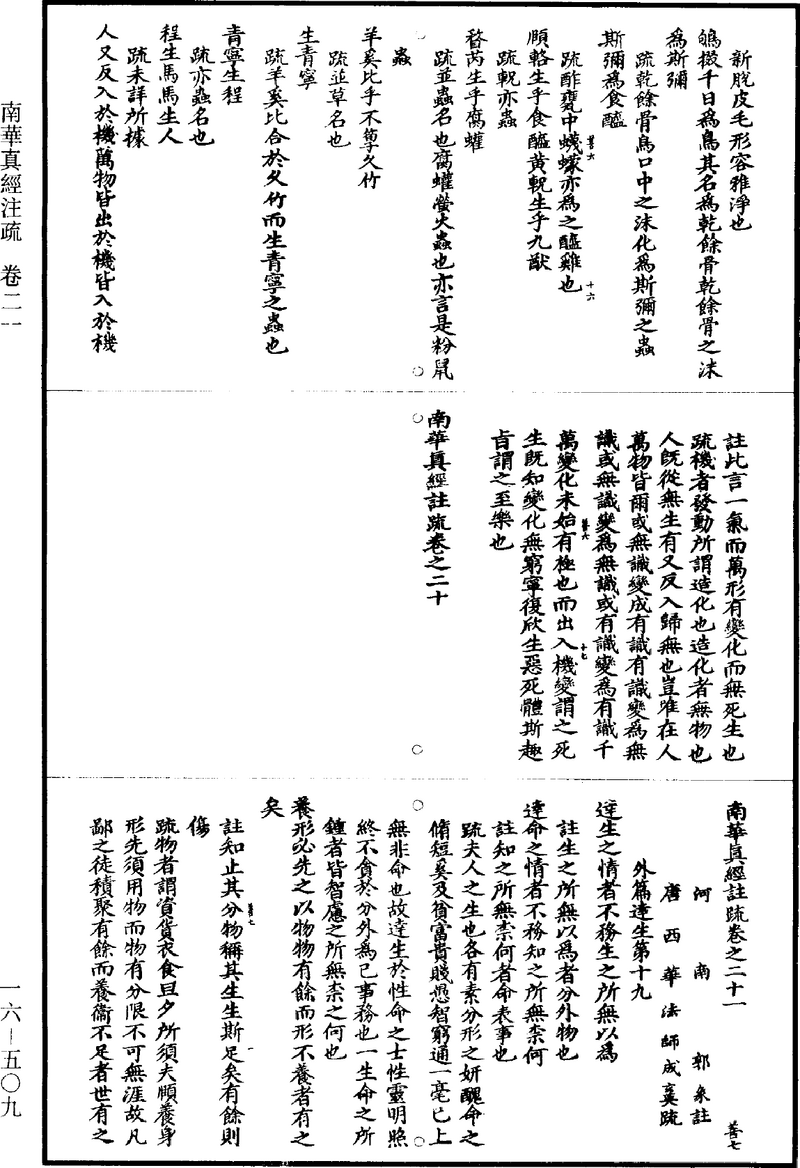 新脫皮毛形容雅淨也
鴝掇千日為鳥其名為乾餘骨乾餘骨之沫
為斯彌
疏乾餘骨鳥口中之沫化為斯彌之蟲
斯彌為食醯
疏酢甕中蠛蠓亦為之醯雞也
頤輅生乎食醯黃軦生乎九猷
疏軦亦蟲
瞀芮生乎腐蠸
疏並蟲名也腐蠸螢火蟲也亦言是粉鼠
蟲
羊奚比乎不箰久竹
疏並草名也
生青寧
疏羊奚比合於久竹而生青寧之蟲也
青寧生程
疏亦蟲名也
程生馬馬生人
疏未詳所據
人又反入於機萬物皆出於機皆入於機
善六
十六
註此言一氣而萬形有變化而無死生也
疏機者發動所謂造化也造化者無物也
人既從無生有又反入歸無也豈唯在人
萬物皆爾或無識變成有識有識變為無
識或無識變為無識或有識變為有識千
萬變化未始有極也而出入機變謂之死
生既知變化無窮寧復欣生惡死體斯趣
旨謂之至樂也
南華真經註疏卷之二十
善六
十七
南華真經註疏卷之二十一
善七
河南郭象註
唐西華法師成玄英疏
外篇達生第十九
達生之情者不務生之所無以為
註生之所無以為者分外物也
達命之情者不務知之所無柰何
註知之所無柰何者命表事也
疏夫人之生也各有素分形之妍醜命之
脩短奚及貧富貴賤愚智窮通一毫已上
無非命也故達生於性命之士性靈明照
終不貪於分外為己事務也一生命之所
鍾者皆智慮之所無柰之何也
養形必先之以物物有餘而形不養者有之
矣
註知止其分物稱其生生斯足矣有餘則
傷
疏物者謂資貨衣食旦夕所須夫頤養身
形先須用物而物有分限不可無涯故凡
鄙之徒積聚有餘而養衛不足者世有之
善七
一
南華真經注疏 卷二一
一六－五〇九